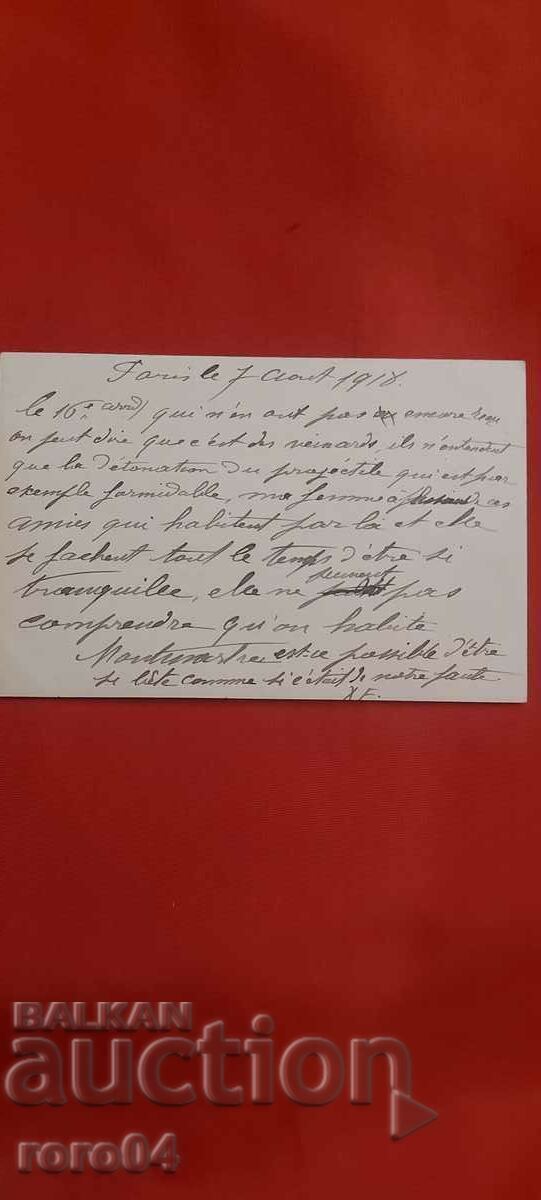 Paris le 7 Aout 1918.
le 16e arrd) qui n'en ont pas encore reçu
on peut dire que c'est des veinards, ils n'entendent
que la détonation du projéctile qui est par
exemple formidable, ma femme a plusieurs de ces
amies qui habitent par là et elle
se fachent tout le temps d'être si
tranquille, elle ne peuvent pas
comprendre qu'on habite
Montmartre est-ce possible d'être
si bête comme si c'était de notre faute
BALKAN
auction
roro04